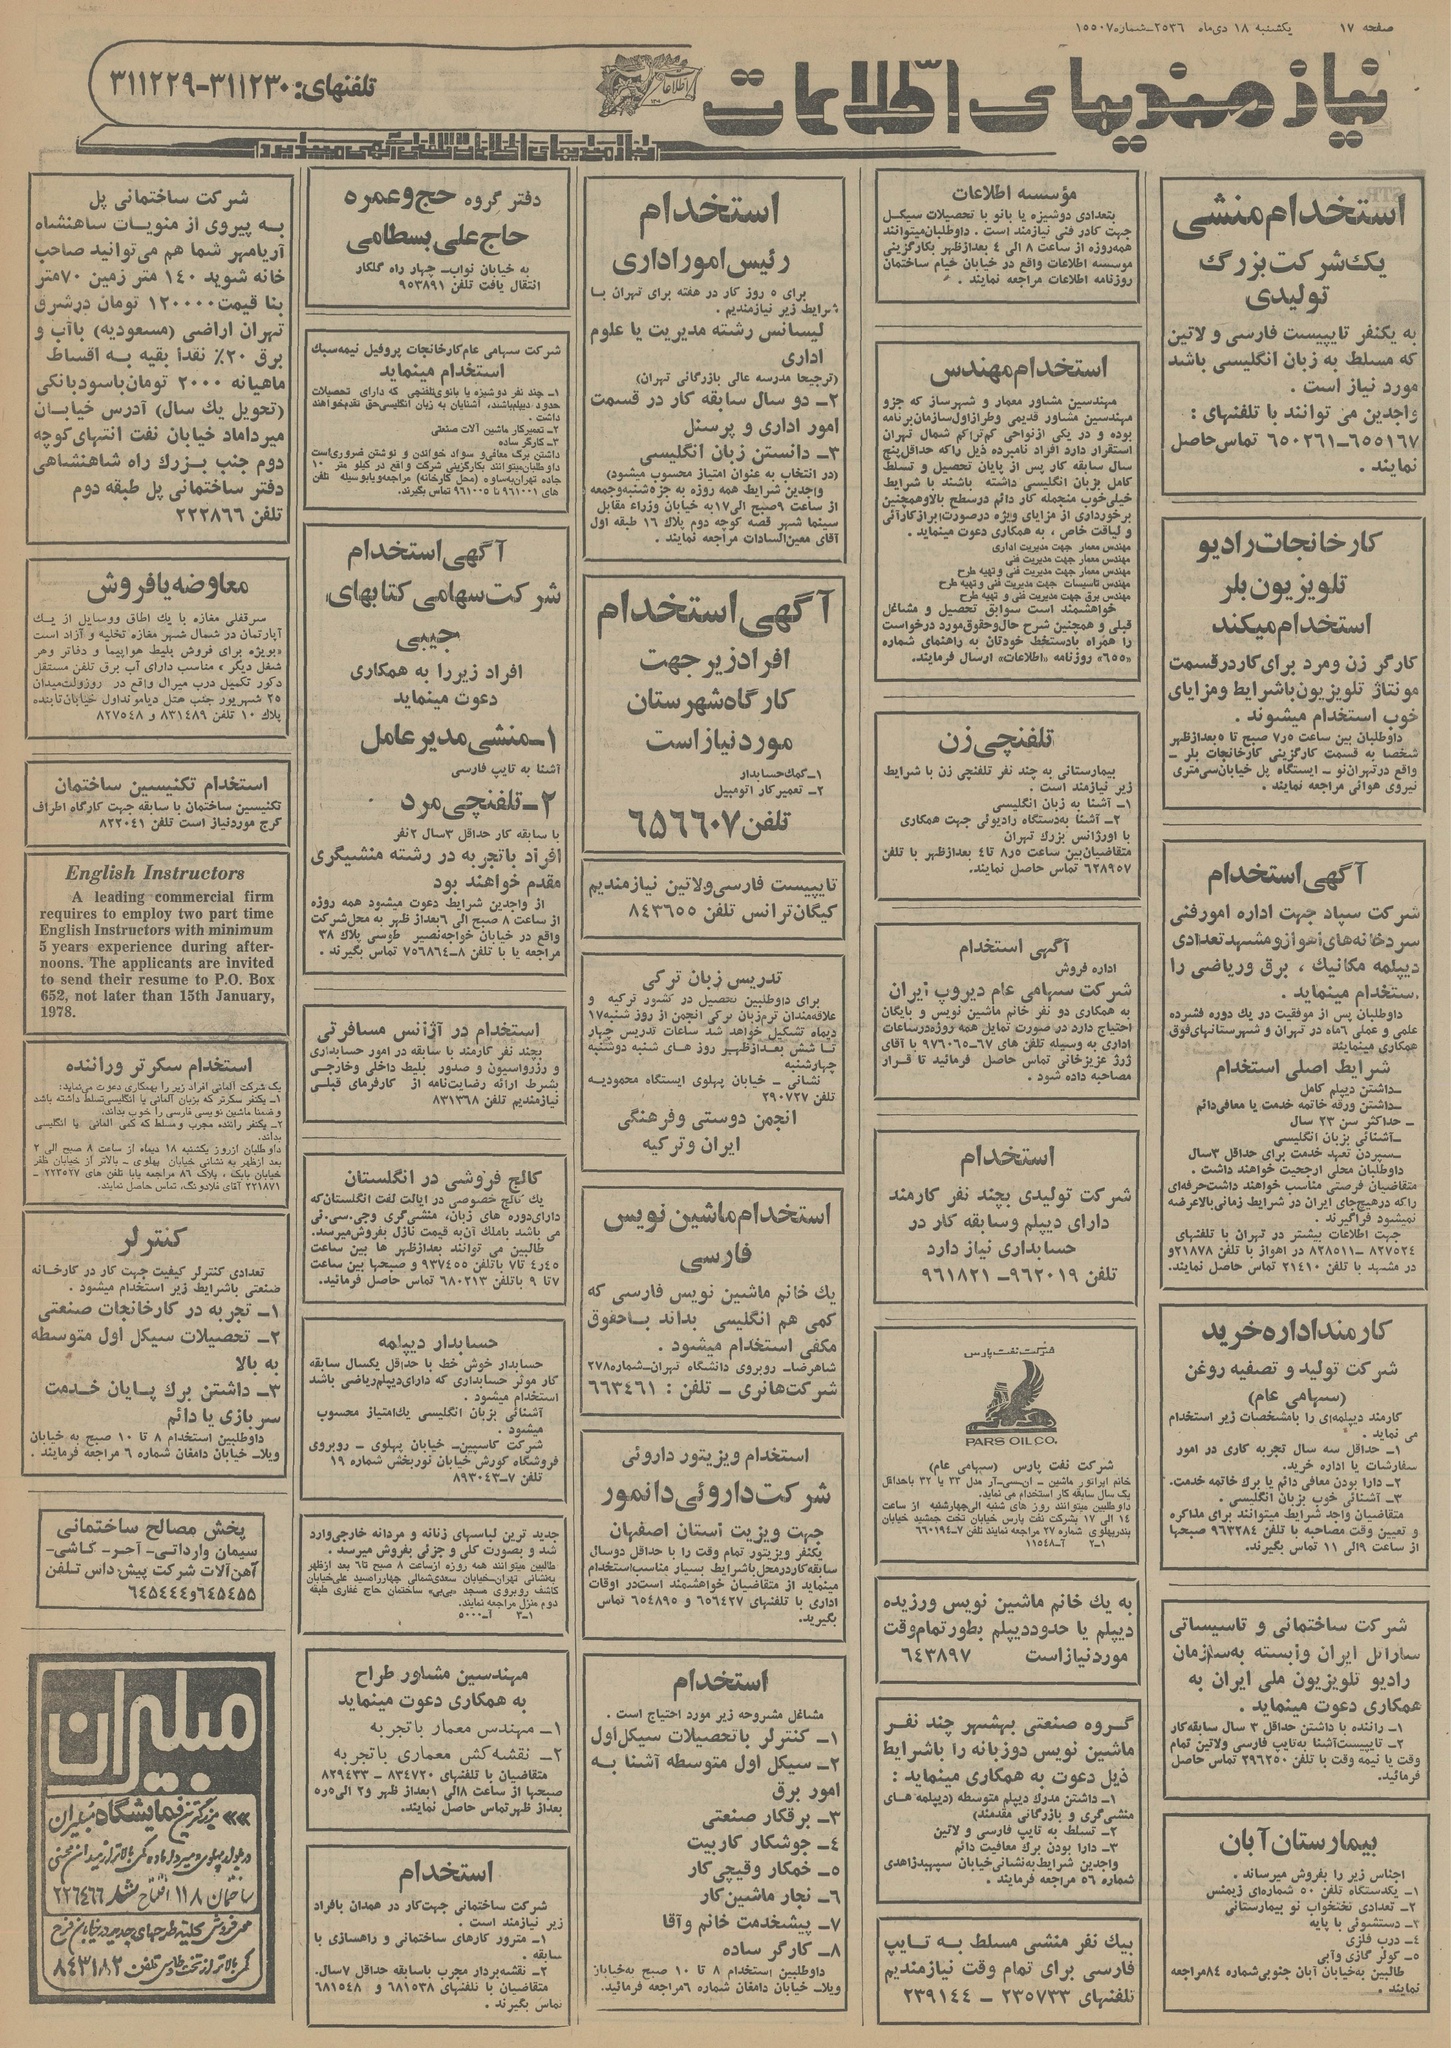 صفحه ۱۷
یکشنبه ۱۸ دی‌ماه ۲۵۳۶ـ شماره ۱۵۵۰۷
نیازمندیهای اطلاعات
تلفنهای: ۳۱۱۲۳۰-۳۱۱۲۲۹
استخدام منشی
یک شرکت بزرگ
تولیدی
به یکنفر تایپیست فارسی و لاتین
که مسلط به زبان انگلیسی باشد
مورد نیاز است .
واجدین می توانند با تلفنهای :
۶۵۵۱۶۷-۶۵۰۲۶۱ تماس حاصل
نمایند .
کارخانجات رادیو
تلویزیون بلر
استخدام میکند
کارگر زن و مرد برای کار در قسمت
مونتاژ تلویزیون باشرایط و مزایای
خوب استخدام میشوند .
داوطلبان بین ساعت ۷٫۵ صبح تا ۵ بعدازظهر
شخصا به قسمت کارگزینی کارخانجات بلر ـ
واقع در تهران‌نو ـ ایستگاه پل خیابان سی‌متری
نیروی هوائی مراجعه نمایند .
آگهی استخدام
شرکت سپاد جهت اداره امور فنی
سردخانه‌های اهواز و مشهد تعدادی
دیپلمه مکانیک ، برق و ریاضی را
استخدام مینماید .
داوطلبان پس از موفقیت در یک دوره فشرده
علمی و عملی ۶ماه در تهران و شهرستانهای فوق
همکاری مینمایند
شرایط اصلی استخدام
ـ داشتن دیپلم کامل
ـ داشتن ورقه خاتمه خدمت یا معافی دائم
ـ حداکثر سن ۲۳ سال
ـ آشنائی بزبان انگلیسی
ـ سپردن تعهد خدمت برای حداقل ۳سال
داوطلبان محلی ارجحیت خواهند داشت .
متقاضیان فرصتی مناسب خواهند داشت حرفه‌ای
را که در هیچ جای ایران در شرایط زمانی بالا عرضه
نمیشود فراگیرند .
جهت اطلاعات بیشتر در تهران با تلفنهای
۸۲۷۵۲۴ - ۸۲۸۵۱۱ در اهواز با تلفن ۲۱۸۷۸ و
در مشهد با تلفن ۲۱۴۱۰ تماس حاصل نمایند.
کارمند اداره خرید
شرکت تولید و تصفیه روغن
(سهامی عام)
کارمند دیپلمه‌ای را بامشخصات زیر استخدام
می نماید .
۱ـ حداقل سه سال تجربه کاری در امور
سفارشات یا اداره خرید.
۲ـ دارا بودن معافی دائم یا برک خاتمه خدمت.
۳ـ آشنائی خوب بزبان انگلیسی .
متقاضیان واجد شرایط میتوانند برای مذاکره
و تعیین وقت مصاحبه با تلفن ۹۶۳۲۸۴ صبحها
از ساعت ۹الی ۱۱ تماس بگیرند.
شرکت ساختمانی و تاسیساتی
سارائل ایران وابسته به سازمان
رادیو تلویزیون ملی ایران به
همکاری دعوت مینماید .
۱ـ راننده با داشتن حداقل ۳ سال سابقه‌کار
۲ـ تایپیست آشنا به تایپ فارسی و لاتین تمام
وقت یا نیمه وقت با تلفن ۲۹۶۲۵۰ تماس حاصل
فرمائید.
بیمارستان آبان
اجناس زیر را بفروش میرساند .
۱ـ یکدستگاه تلفن ۵۰ شماره‌ای زیمنس
۲ـ تعدادی تختخواب نو بیمارستانی
۳ـ دستشوئی با پایه
۴ـ درب فلزی
۵ـ کولر گازی و آبی
طالبین به خیابان آبان جنوبی شماره ۸۴ مراجعه
نمایند .
مؤسسه اطلاعات
بتعدادی دوشیزه یا بانو با تحصیلات سیکل
جهت کادر فنی نیازمند است . داوطلبان میتوانند
همه‌روزه از ساعت ۸ الی ۴ بعدازظهر بکارگزینی
موسسه اطلاعات واقع در خیابان خیام ساختمان
روزنامه اطلاعات مراجعه نمایند .
استخدام مهندس
مهندسین مشاور معمار و شهرساز که جزو
مهندسین مشاور قدیمی و طراز اول سازمان برنامه
بوده و در یکی از نواحی کم‌تراکم شمال تهران
استقرار دارد افراد نامبرده ذیل را که حداقل پنج
سال سابقه کار پس از پایان تحصیل و تسلط
کامل بزبان انگلیسی داشته باشند با شرایط
خیلی خوب منجمله کار دائم در سطح بالا و همچنین
برخورداری از مزایای ویژه در صورت ابراز کارآئی
و لیاقت خاص ، به همکاری دعوت مینماید .
مهندس معمار جهت مدیریت اداری
مهندس معمار جهت مدیریت فنی
مهندس معمار جهت مدیریت فنی و تهیه طرح
مهندس تاسیسات جهت مدیریت فنی و تهیه طرح
مهندس برق جهت مدیریت فنی و تهیه طرح
خواهشمند است سوابق تحصیل و مشاغل
قبلی و همچنین شرح حال و حقوق مورد درخواست
را همراه بادستخط خودتان به راهنمای شماره
«۶۵۵» روزنامه «اطلاعات» ارسال فرمایند.
تلفنچی زن
بیمارستانی به چند نفر تلفنچی زن با شرایط
زیر نیازمند است .
۱ـ آشنا به زبان انگلیسی
۲ـ آشنا به دستگاه رادیوئی جهت همکاری
با اورژانس بزرگ تهران
متقاضیان بین ساعت ۸٫۵ تا ۴ بعدازظهر با تلفن
۶۲۸۹۵۷ تماس حاصل نمایند.
آگهی استخدام
اداره فروش
شرکت سهامی عام دیروپ ایران
به همکاری دو نفر خانم ماشین نویس و بایگان
احتیاج دارد در صورت تمایل همه روزه در ساعات
اداری به وسیله تلفن های ۶۷-۹۷۶۰۶۵ با آقای
ژرژ عزیزخانی تماس حاصل فرمائید تا قرار
مصاحبه داده شود .
استخدام
شرکت تولیدی بچند نفر کارمند
دارای دیپلم و سابقه کار در
حسابداری نیاز دارد
تلفن ۹۶۲۰۱۹- ۹۶۱۸۲۱
شرکت نفت پارس
PARS OIL CO.
شرکت نفت پارس (سهامی عام)
خانم اپراتور ماشین ـ ان.سی.آر مدل ۳۳ یا ۳۲ باحداقل
یک سال سابقه کار استخدام می نماید.
داوطلبین میتوانند روز های شنبه الی چهارشنبه از ساعت
۱۴ الی ۱۷ بشرکت نفت پارس خیابان تخت جمشید خیابان
بندرپهلوی شماره ۲۷ مراجعه نمایند تلفن ۷-۶۶۰۱۹۴
۲-۱ آ-۱۱۵۴۸
به یک خانم ماشین نویس ورزیده
دیپلم یا حدود دیپلم بطور تمام وقت
مورد نیاز است ۶۴۳۸۹۷
گروه صنعتی بهشهر چند نفر
ماشین نویس دوزبانه را باشرایط
ذیل دعوت به همکاری مینماید :
۱ـ داشتن مدرک دیپلم متوسطه (دیپلمه های
منشی‌گری و بازرگانی مقدمند)
۲ـ تسلط به تایپ فارسی و لاتین
۳ـ دارا بودن برک معافیت دائم
واجدین شرایط به نشانی خیابان سپهبد زاهدی
شماره ۵۶ مراجعه فرمایند .
بیک نفر منشی مسلط به تایپ
فارسی برای تمام وقت نیازمندیم
تلفنهای ۲۳۵۷۳۳ - ۲۳۹۱۴۴
استخدام
رئیس امور اداری
برای ۵ روز کار در هفته برای تهران با
شرایط زیر نیازمندیم .
لیسانس رشته مدیریت یا علوم
اداری
(ترجیحا مدرسه عالی بازرگانی تهران)
۲ـ دو سال سابقه کار در قسمت
امور اداری و پرسنل
۳ـ دانستن زبان انگلیسی
(در انتخاب به عنوان امتیاز محسوب میشود)
واجدین شرایط همه روزه به جز شنبه و جمعه
از ساعت ۹صبح الی ۱۷به خیابان وزراء مقابل
سینما شهر قصه کوچه دوم پلاک ۱۶ طبقه اول
آقای معین‌السادات مراجعه نمایند .
آگهی استخدام
افراد زیر جهت
کارگاه شهرستان
مورد نیاز است
۱ـ کمک حسابدار
۲ـ تعمیرکار اتومبیل
تلفن ۶۵۶۶۰۷
تایپیست فارسی و لاتین نیازمندیم
کیگان ترانس تلفن ۸۴۳۶۵۵
تدریس زبان ترکی
برای داوطلبین تحصیل در کشور ترکیه و
علاقه‌مندان ترم زبان ترکی انجمن از روز شنبه ۱۷
دیماه تشکیل خواهد شد ساعات تدریس چهار
تا شش بعدازظهر روز های شنبه دوشنبه
چهارشنبه
نشانی ـ خیابان پهلوی ایستگاه محمودیه
تلفن ۲۹۰۷۲۷
انجمن دوستی و فرهنگی
ایران و ترکیه
استخدام ماشین نویس
فارسی
یک خانم ماشین نویس فارسی که
کمی هم انگلیسی بداند با حقوق
مکفی استخدام میشود .
شاهرضا ـ روبروی دانشگاه تهران ـ شماره ۲۷۸
شرکت هانری ـ تلفن : ۶۶۳۴۶۱
استخدام ویزیتور داروئی
شرکت داروئی دانمور
جهت ویزیت استان اصفهان
یکنفر ویزیتور تمام وقت را با حداقل دوسال
سابقه‌کار در محل باشرایط بسیار مناسب استخدام
مینماید از متقاضیان خواهشمند است در اوقات
اداری با تلفنهای ۶۵۶۴۲۷ و ۶۵۴۸۹۵ تماس
بگیرید.
استخدام
مشاغل مشروحه زیر مورد احتیاج است .
۱ـ کنترلر با تحصیلات سیکل اول
۲ـ سیکل اول متوسطه آشنا به
امور برق
۳ـ برقکار صنعتی
۴ـ جوشکار کاربیت
۵ـ خمکار و قیچی کار
۶ـ نجار ماشین کار
۷ـ پیشخدمت خانم و آقا
۸ـ کارگر ساده
داوطلبین استخدام ۸ تا ۱۰ صبح به خیابان
ویلا ـ خیابان دامغان شماره ۶ مراجعه فرمائید.
دفتر گروه حج و عمره
حاج علی بسطامی
به خیابان نواب ـ چهار راه گلکار
انتقال یافت تلفن ۹۵۳۸۹۱
شرکت سهامی عام کارخانجات پروفیل نیمه سبک
استخدام مینماید
۱ـ چند نفر دوشیزه یا بانوی تلفنچی که دارای تحصیلات
حدود دیپلم باشند، آشنایان به زبان انگلیسی حق تقدم خواهند
داشت .
۲ـ تعمیرکار ماشین آلات صنعتی
۳ـ کارگر ساده
داشتن برگ معافی و سواد خواندن و نوشتن ضروری است
داوطلبان میتوانند بکارگزینی شرکت واقع در کیلو متر ۱۰
جاده تهران به ساوه (محل کارخانه) مراجعه و یا بوسیله تلفن
های ۹۶۱۰۰۱ تا ۹۶۱۰۰۵ تماس بگیرند.
آگهی استخدام
شرکت سهامی کتابهای
جیبی
افراد زیر را به همکاری
دعوت مینماید
۱ـ منشی مدیر عامل
آشنا به تایپ فارسی
۲ـ تلفنچی مرد
با سابقه کار حداقل ۳سال ۲نفر
افراد با تجربه در رشته منشیگری
مقدم خواهند بود
از واجدین شرایط دعوت میشود همه روزه
از ساعت ۸ صبح الی ۶بعداز ظهر به محل شرکت
واقع در خیابان خواجه نصیر طوسی پلاک ۳۸
مراجعه یا با تلفن ۸-۷۵۶۸۶۴ تماس بگیرند .
استخدام در آژانس مسافرتی
بچند نفر کارمند با سابقه در امور حسابداری
و رزرواسیون و صدور بلیط داخلی و خارجی
بشرط ارائه رضایت‌نامه از کارفرمای قبلی
نیازمندیم تلفن ۸۳۱۳۶۸
کالج فروشی در انگلستان
یک کالج خصوصی در ایالت لفت انگلستان که
دارای دوره های زبان، منشی گری و جی.سی.ئی
می باشد باملک آن به قیمت نازل بفروش میرسد.
طالبین می توانند بعدازظهر ها بین ساعت
۴٫۴۵ تا ۷ باتلفن ۹۳۷۴۵۵ و صبحها بین ساعت
۷ تا ۹ باتلفن ۶۸۰۲۱۳ تماس حاصل فرمائید.
حسابدار دیپلمه
حسابدار خوش خط با حداقل یکسال سابقه
کار موثر حسابداری که دارای دیپلم ریاضی باشد
استخدام میشود .
آشنائی بزبان انگلیسی یک امتیاز محسوب
میشود .
شرکت کاسپین ـ خیابان پهلوی ـ روبروی
فروشگاه کورش خیابان نوربخش شماره ۱۹
تلفن ۷-۸۹۳۰۴۳
جدید ترین لباسهای زنانه و مردانه خارجی وارد
شد و بصورت کلی و جزئی بفروش میرسد .
طالبین میتوانند همه روزه از ساعت ۸ صبح تا ۶ بعدازظهر
به نشانی تهران ـ خیابان سعدی شمالی چهارراه سید علی خیابان
کاشف روبروی مسجد «بی‌بی» ساختمان حاج غفاری طبقه
دوم منزل مراجعه نمایند.
۳-۱ آ-۵۰۰۰
مهندسین مشاور طراح
به همکاری دعوت مینماید
۱ـ مهندس معمار باتجربه
۲ـ نقشه‌کش معماری باتجربه
متقاضیان با تلفنهای ۸۳۴۷۲۰ - ۸۲۹۴۳۳
صبحها از ساعت ۸الی ۱بعداز ظهر و ۲ الی ۵ره
بعداز ظهر تماس حاصل نمایند.
استخدام
شرکت ساختمانی جهت کار در همدان بافراد
زیر نیازمند است .
۱ـ مترور کارهای ساختمانی و راهسازی با
سابقه .
۲ـ نقشه‌بردار مجرب باسابقه حداقل ۷سال.
متقاضیان با تلفنهای ۶۸۱۵۳۸ و ۶۸۱۵۴۸
تماس بگیرند .
شرکت ساختمانی پل
به پیروی از منویات شاهنشاه
آریامهر شما هم می توانید صاحب
خانه شوید ۱۴۰ متر زمین ۷۰متر
بنا قیمت ۱۲۰۰۰۰ تومان در شرق
تهران اراضی (مسعودیه) با آب و
برق ۲۰٪ نقداً بقیه به اقساط
ماهیانه ۲۰۰۰ تومان باسود بانکی
(تحویل یک سال) آدرس خیابان
میرداماد خیابان نفت انتهای کوچه
دوم جنب بزرگ راه شاهنشاهی
دفتر ساختمانی پل طبقه دوم
تلفن ۲۲۲۸۶۶
معاوضه یا فروش
سرقفلی مغازه با یک اطاق و وسایل از یک
آپارتمان در شمال شهر مغازه تخلیه و آزاد است
«بویژه برای فروش بلیط هواپیما و دفاتر و هر
شغل دیگر ، مناسب دارای آب برق تلفن مستقل
دکور تکمیل درب میرال واقع در روزولت میدان
۲۵ شهریور جنب هتل دیاموند اول خیابان تابنده
پلاک ۱۰ تلفن ۸۳۱۴۸۹ و ۸۲۷۵۴۸
استخدام تکنیسین ساختمان
تکنیسین ساختمان با سابقه جهت کارگاه اطراف
کرج مورد نیاز است تلفن ۸۲۲۰۴۱
English Instructors
A leading commercial firm
requires to employ two part time
English Instructors with minimum
5 years experience during after-
noons. The applicants are invited
to send their resume to P.O. Box
652, not later than 15th January,
1978.
استخدام سکرتر و راننده
یک شرکت آلمانی افراد زیر را بهمکاری دعوت می‌نماید:
۱ـ یکنفر سکرتر که بزبان آلمانی یا انگلیسی تسلط داشته باشد
و ضمنا ماشین نویسی فارسی را خوب بداند.
۲ـ یکنفر راننده مجرب و مسلط که کمی آلمانی یا انگلیسی
بداند.
داوطلبان از روز یکشنبه ۱۸ دیماه از ساعت ۸ صبح الی ۲
بعد ازظهر به نشانی خیابان پهلوی ـ بالاتر از خیابان ظفر
خیابان بابک ، پلاک ۸۶ مراجعه یا با تلفن های ۲۲۳۵۲۷ -
۲۲۱۸۷۱ آقای فلادونگ، تماس حاصل نمایند.
کنترلر
تعدادی کنترلر کیفیت جهت کار در کارخانه
صنعتی باشرایط زیر استخدام میشود .
۱ـ تجربه در کارخانجات صنعتی
۲ـ تحصیلات سیکل اول متوسطه
به بالا
۳ـ داشتن برک پایان خدمت
سربازی یا دائم
داوطلبین استخدام ۸ تا ۱۰ صبح به خیابان
ویلا ـ خیابان دامغان شماره ۶ مراجعه فرمایند .
پخش مصالح ساختمانی
سیمان وارداتی ـ آجر ـ کاشی ـ
آهن‌آلات شرکت پیش داس تلفن
۶۴۵۴۵۵ و ۶۴۵۴۴۴
مبلیران
بزرگترین نمایشگاه مبلیران
در جاده پهلوی سر میرداماد کمی بالاتر از میدان محسنی
ساختمان ۱۱۸ افتتاح شد ۲۲۶۴۶۶
محل فروش کلیه طرحهای جدید در خیابان فرح
کمی بالاتر از تخت طاوس تلفن ۸۴۳۱۸۲